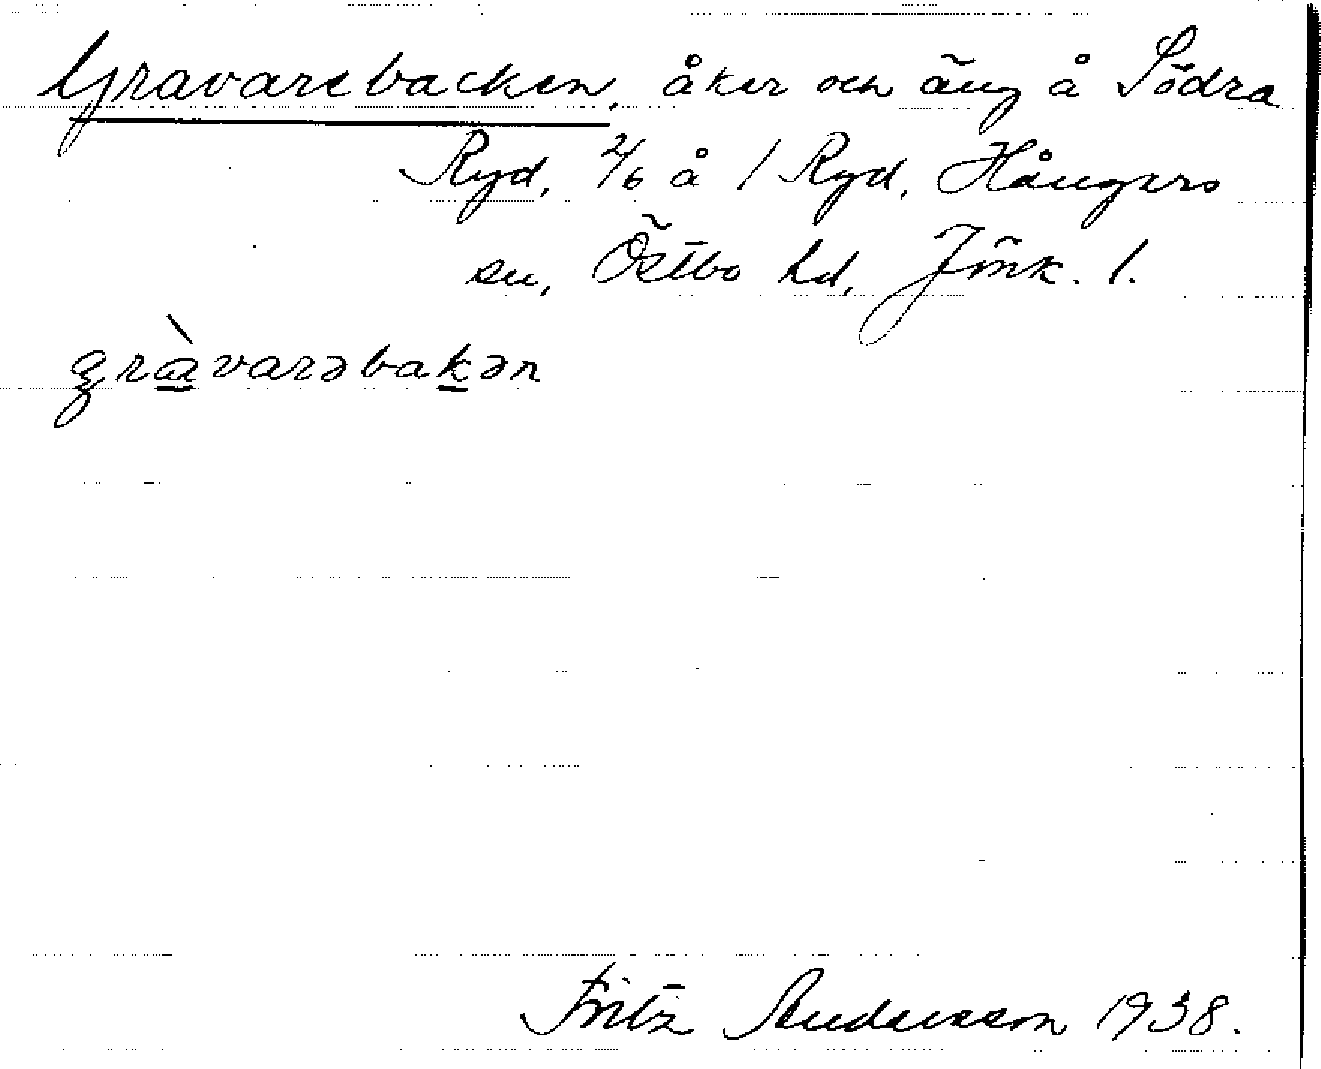 Gravarebacken, åker och äng å Södra
Ryd, 2/6 å 1 Ryd, Hångers
sn, Östbo hd, Jönk. l.
gràvarəbakən
Fritz Andersson 1938.